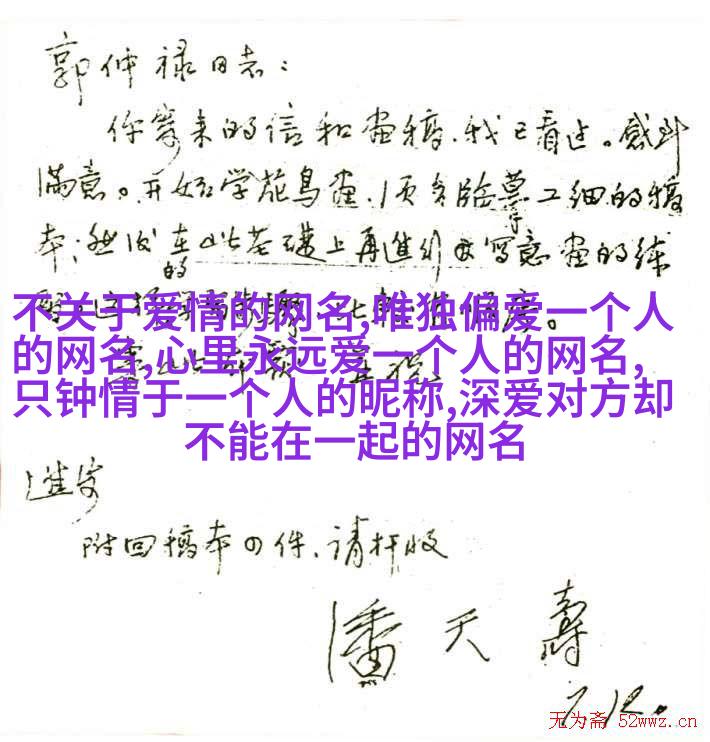 郭仲禄同志：
你寄来的信和画稿，我已看过。感到
满意。开始学花鸟画，须多临摹工细的稿
本；然后在此基础上再进行写意画的练
的
不关于爱情的网名,唯独偏爱一个人
的网名,心里永远爱一个人的网名,
只钟情于一个人的昵称,深爱对方却
不能在一起的网名
进安
附回稿本四件、请检收
潘天寿
7.12.
无为斋 52wwz.cn